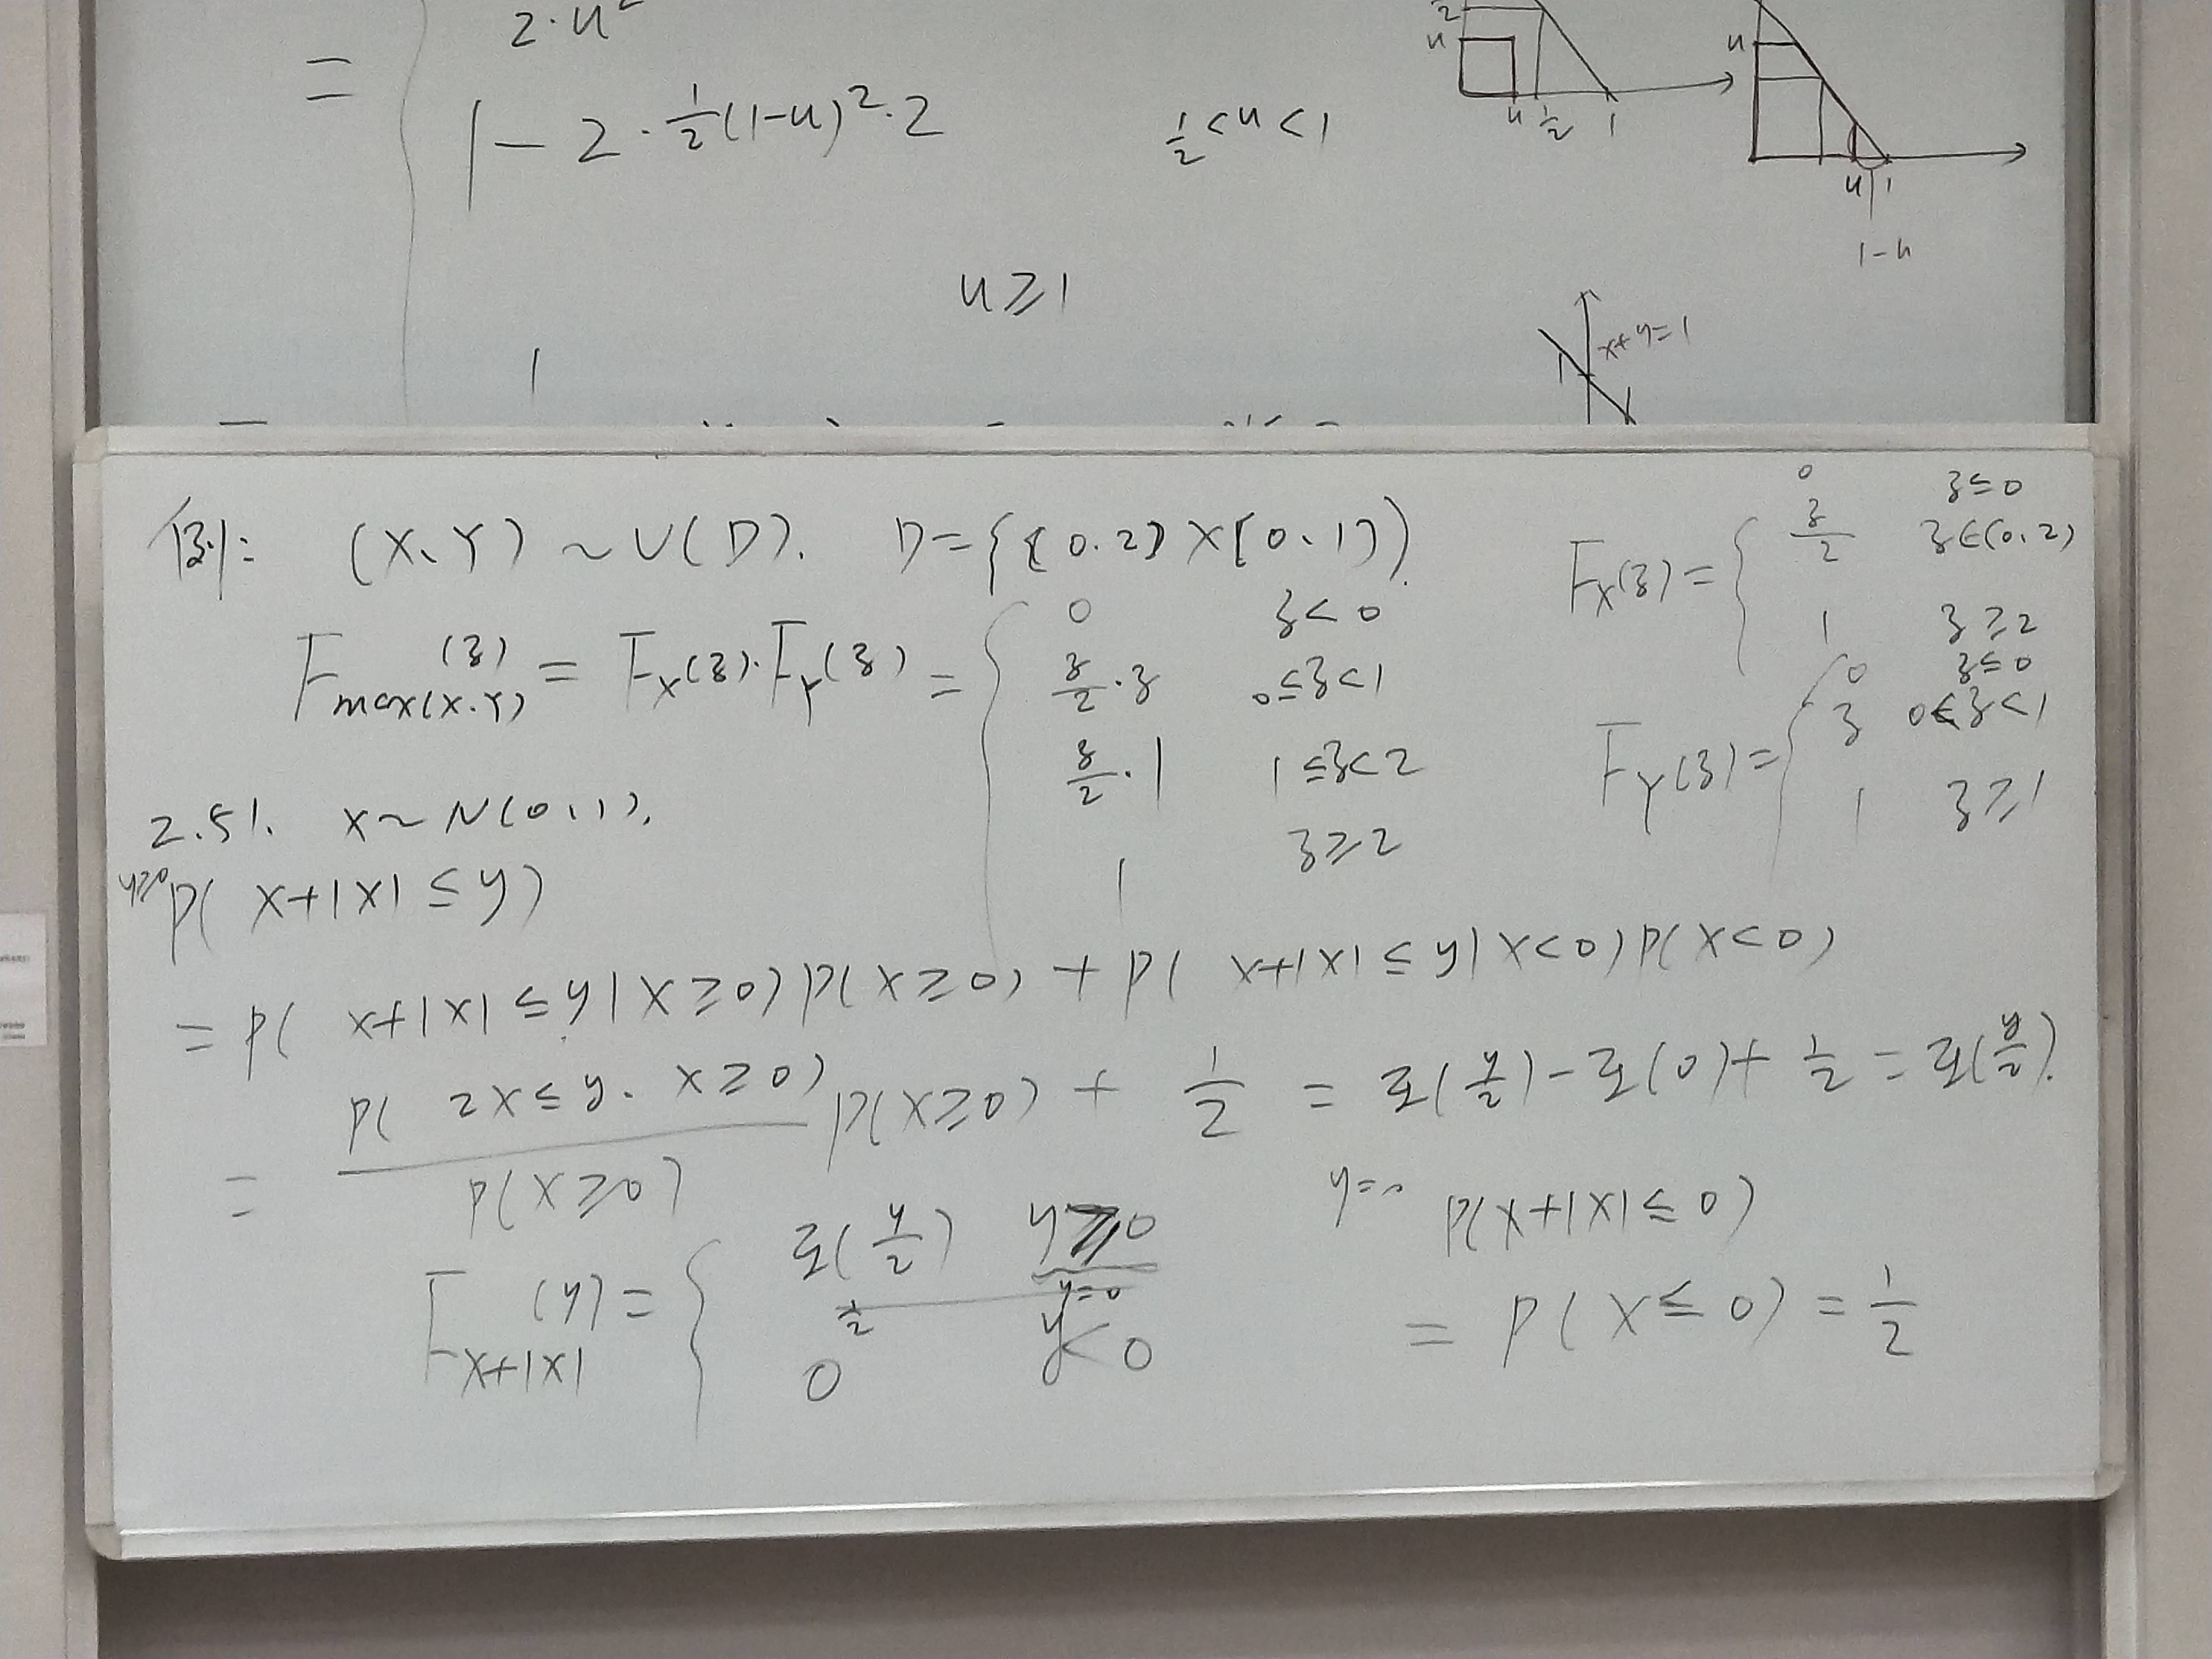 2·u²
= 1-2·½(1-u)²·2    ½<u<1
u≥1
1
½
u
u ½ 1
u
u 1
1-u
x+y=1
例: (X,Y) ~ U(D). D={[0,2]×[0,1]}.
F_max(X,Y)(z) = F_X(z)·F_Y(z) = {
0    z<0
z/2·z    0≤z<1
z/2·1    1≤z<2
1    z≥2
F_X(z) = {
0    z≤0
z/2    z∈(0,2)
1    z≥2
F_Y(z) = {
0    z≤0
z    0≤z<1
1    z≥1
2.51. X~N(0,1).
y≥0 P( X+|X| ≤ y)
= P( X+|X| ≤ y | X≥0) P(X≥0) + P( X+|X| ≤ y | X<0) P(X<0)
= P( 2X≤y, X≥0) / P(X≥0) P(X≥0) + ½ = Φ(y/2) - Φ(0) + ½ = Φ(y/2).
F_X+|X|(y) = {
Φ(y/2)    y≥0
½    y=0
0    y<0
y=0 P(X+|X|≤0)
= P(X≤0) = ½